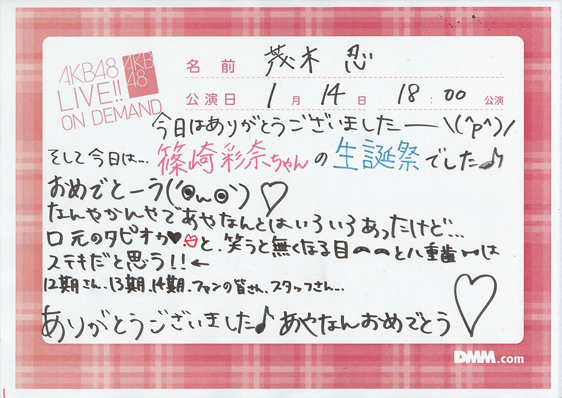 AKB48
LIVE!!
ON DEMAND
AKB
48
名前 茂木 忍
公演日 1月 14日 18:00 公演
今日はありがとうございましたー\(^p^)/
そして今日は…篠崎彩奈ちゃんの生誕祭でした♪
おめでとーう(´◉ω◉`)♡
なんやかんやであやなんとはいろいろあったけど…
口元のタピオカ♥💋と、笑うと無くなる目⌒⌒と八重歯は
ステキだと思う!!←
12期さん、13期、14期、ファンの皆さん、スタッフさん…
ありがとうございました♪あやなんおめでとう♡
DMM.com